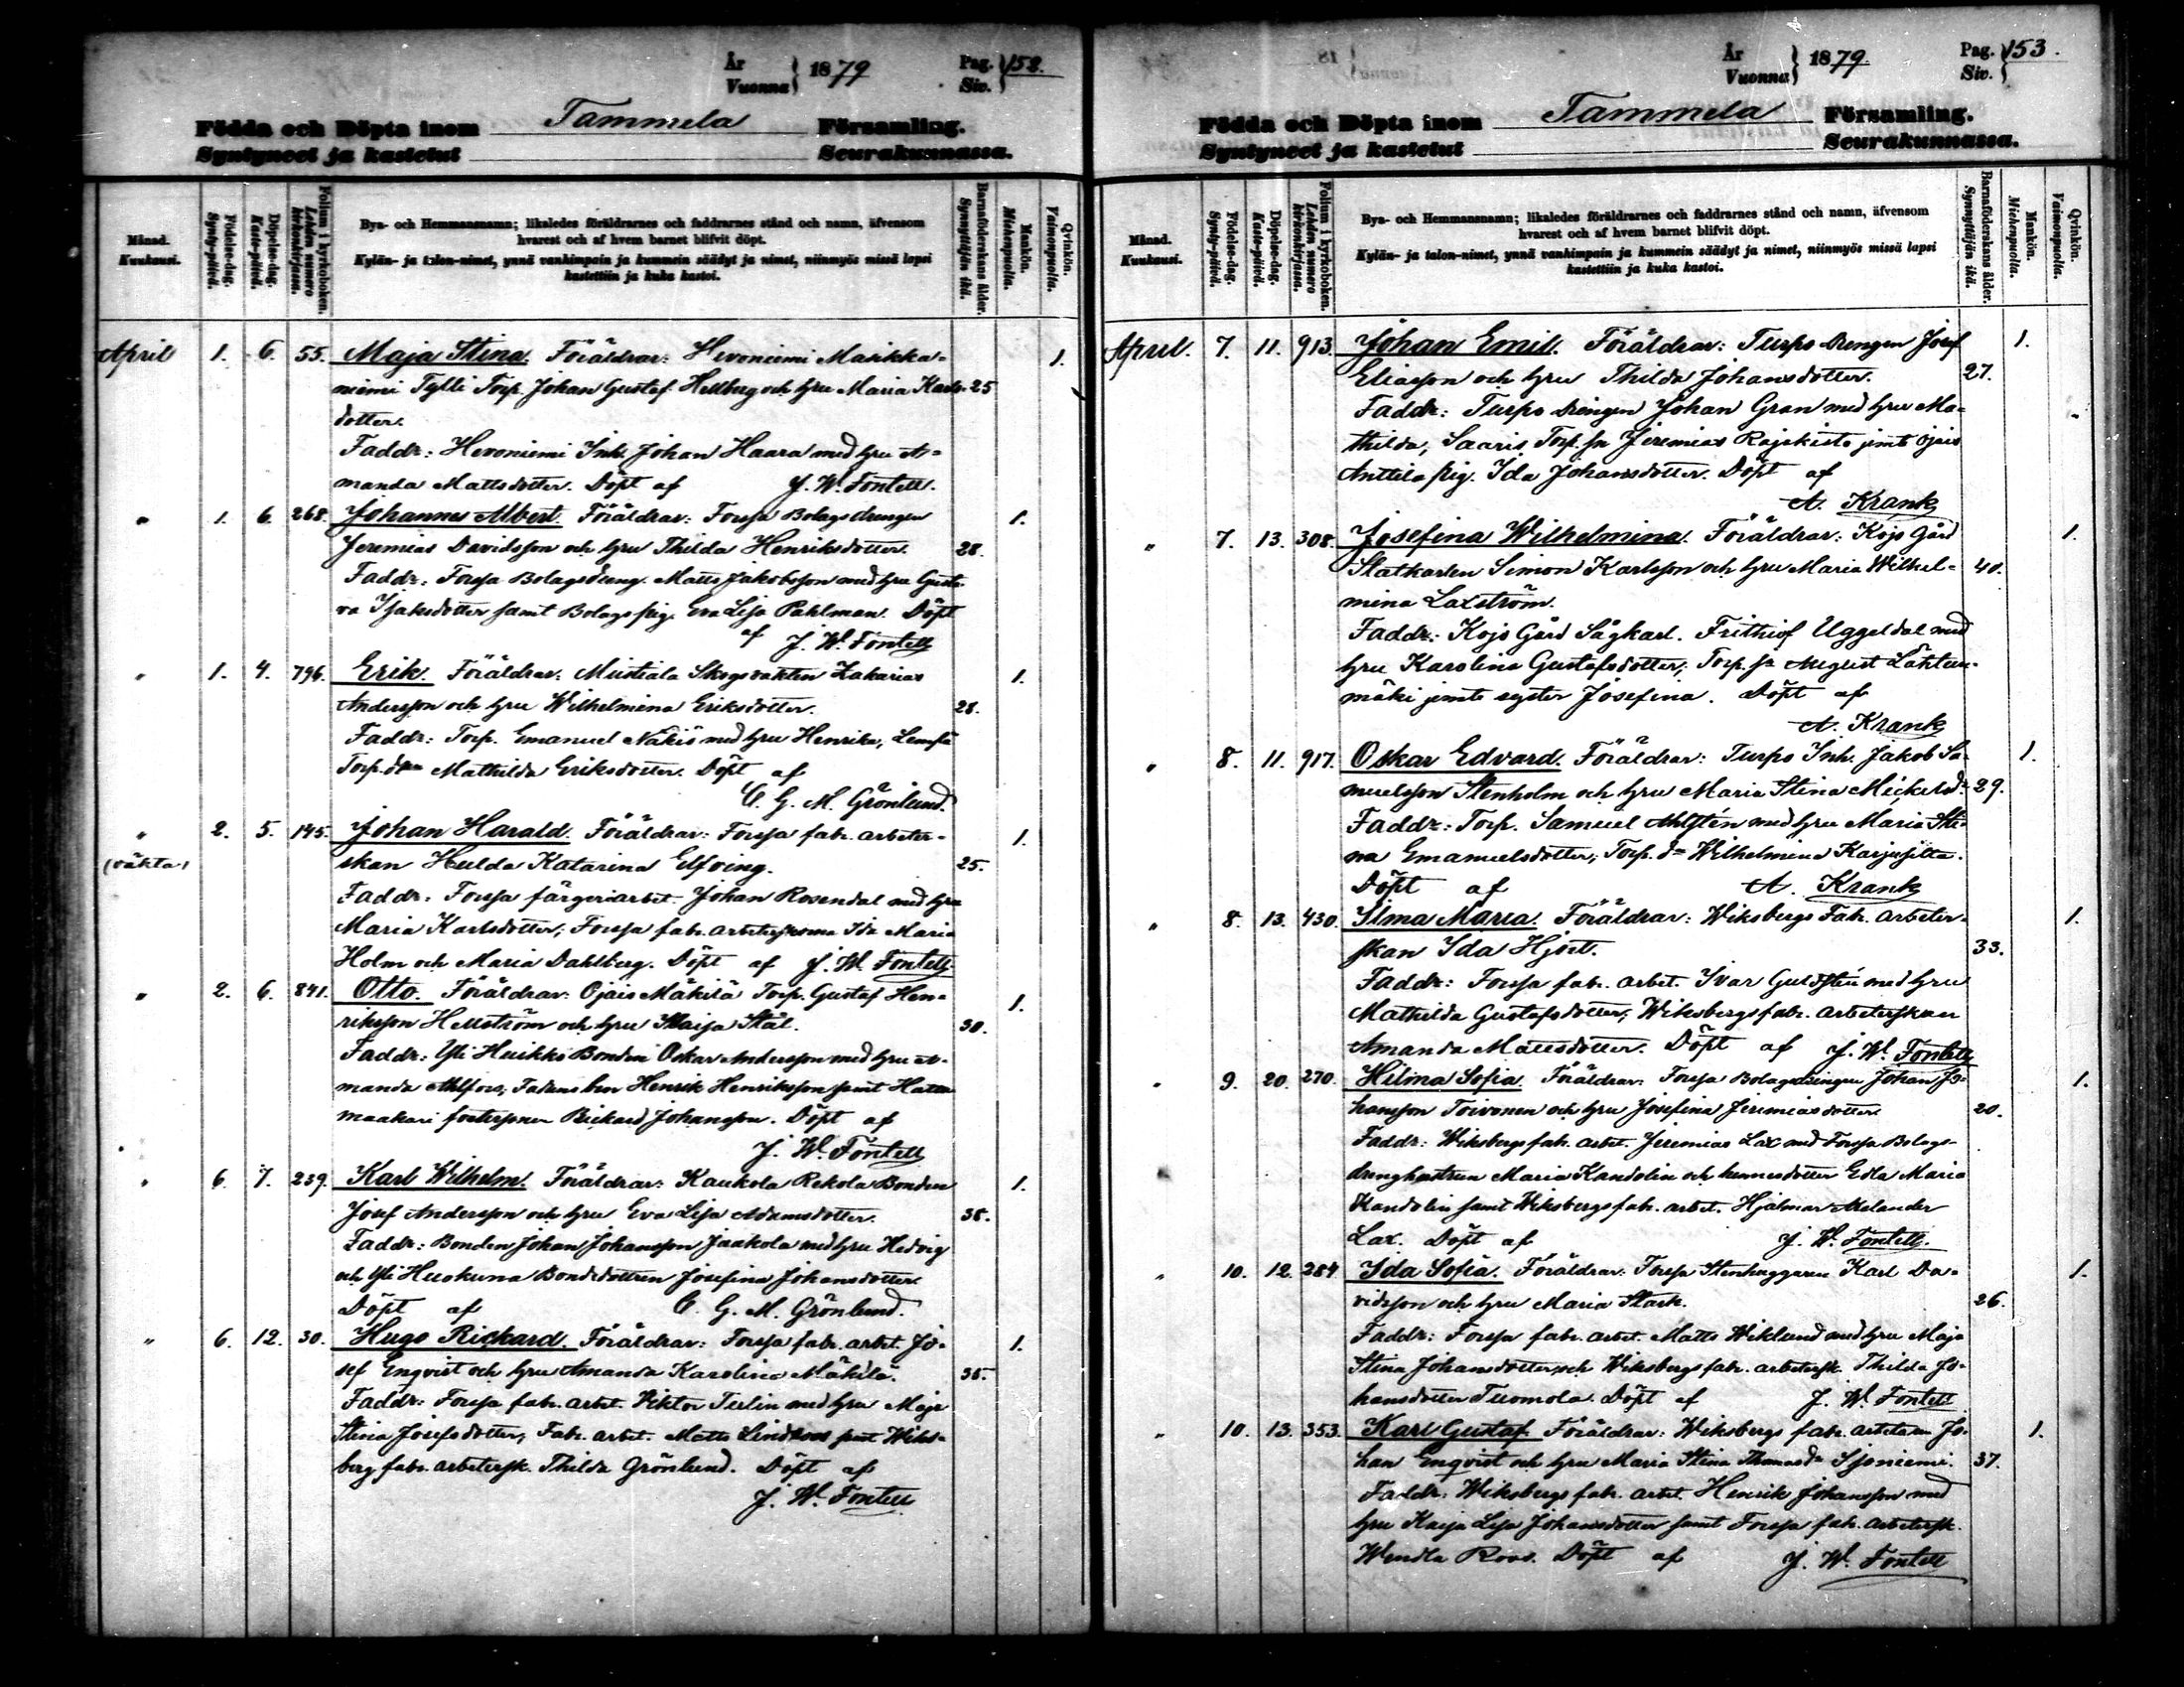 År
Vuonna } 1879
Pag. 152.
Siv.
Födda och Döpta inom Tammela Församling.
Syntyneet ja kastetut Seurakunnassa.
Månad.
Kuukausi.
Födelse-dag.
Synty-päivä.
Döpelse-dag.
Kaste-päivä.
Folium i kyrkoboken.
Lehden numero kirkonkirjassa.
Bya- och Hemmansnamn; likaledes föräldrarnes och faddrarnes stånd och namn, äfvensom
hvarest och af hvem barnet blifvit döpt.
Kylän- ja talon-nimet, ynnä vanhimpain ja kummein säädyt ja nimet, niinmyös missä lapsi
kastettiin ja kuka kastoi.
Barnaföderskans ålder.
Synnyttäjän ikä.
Mankön.
Miehenpuolta.
Qvinkön.
Vaimonpuolta.
April 1. 6. 55. Maja Stina. Föräldrar: Hevoniemi Manikka- 1.
niemi Tylli Torp. Johan Gustaf Hellberg och hru Maria Karls- 25
dotter.
Faddr: Hevoniemi Inh. Johan Haara med hru A-
manda Mattsdotter. Döpt af J. W. Fontell.
" 1. 6. 268. Johannes Albert. Föräldrar: Forssa Bolagsdrengen 1.
Jeremias Davidsson och hru Thilda Henriksdotter. 28.
Faddr: Forssa Bolagsdreng. Matts Jakobsson med hru Gusta-
va Isaksdotter samt Bolagspig. Eva Lisa Pahlman. Döpt
af J. W. Fontell
" 1. 4. 796. Erik. Föräldrar: Mustiala Skogsvakten Zakarias 1.
Andersson och hru Wilhelmina Eriksdotter. 28.
Faddr: Torp. Emanuel Näkiö med hru Henrika,
Torp.dtr Mathilda Eriksdotter. Döpt af
C. G. M. Grönlund.
" 2. 5. 145. Johan Harald. Föräldrar: Forssa fabr. arbeter- 1.
(oäkta) skan Hulda Katarina Elfving. 25.
Faddr: Forssa färgeriarbet. Johan Rosendal med hru
Maria Karlsdotter; Forssa fabr. arbeterskorna Ida Maria
Holm och Maria Dahlberg. Döpt af J. W. Fontell.
" 2. 6. 841. Otto. Föräldrar: Ojais Mäkilä Torp. Gustaf Hen- 1.
riksson Hellström och hru Maija Stål. 30.
Faddr: Yli Huikko Bonden Oskar Andersson med hru A-
manda Ahlfors; Henrik Henriksson samt
fostersonen Rickard Johansson. Döpt af
J. W. Fontell
" 6. 7. 239. Karl Wilhelm. Föräldrar: Kaukola Rekola Bonden 1.
Josef Andersson och hru Eva Lisa Adamsdotter. 38.
Faddr: Bonden Johan Johansson Jaakola med hru Hedvig
och Yli Huskuna Bondedottren Josefina Johansdotter.
Döpt af C. G. M. Grönlund.
" 6. 12. 30. Hugo Rickard. Föräldrar: Forssa fabr. arbet. Jo- 1.
sef Enqvist och hru Amanda Karolina Mäkilä. 35.
Faddr: Forssa fabr. arbet. Viktor Terlin med hru Maja
Stina Josefsdotter, Fabr. arbet. Matts Lindroos samt Wiks-
berg fabr. arbetersk. Thilda Grönlund. Döpt af
J. W. Fontell
År
Vuonna } 1879.
Pag. 153.
Siv.
Födda och Döpta inom Tammela Församling.
Syntyneet ja kastetut Seurakunnassa.
Månad.
Kuukausi.
Födelse-dag.
Synty-päivä.
Döpelse-dag.
Kaste-päivä.
Folium i kyrkoboken.
Lehden numero kirkonkirjassa.
Bya- och Hemmansnamn; likaledes föräldrarnes och faddrarnes stånd och namn, äfvensom
hvarest och af hvem barnet blifvit döpt.
Kylän- ja talon-nimet, ynnä vanhimpain ja kummein säädyt ja nimet, niinmyös missä lapsi
kastettiin ja kuka kastoi.
Barnaföderskans ålder.
Synnyttäjän ikä.
Mankön.
Miehenpuolta.
Qvinkön.
Vaimonpuolta.
April. 7. 11. 913. Johan Emil. Föräldrar: Turpo Drengen Josef 1.
Eliasson och hru Thilda Johansdotter. 27.
Faddr: Turpo drengen Johan Gran med hru Ma-
thilda, Saaris Torp. sn Jeremias Rajakisto jemte Ojais
Anttila pig. Ida Johansdotter. Döpt af
A. Krank
" 7. 13. 308. Josefina Wilhelmina. Föräldrar: Kojo Gård 1.
Statkarlen Simon Karlsson och hru Maria Wilhel- 40.
mina Laxström.
Faddr: Kojo Gård Sågkarl. Frithiof Uggeldal med
hru Karolina Gustafsdotter; Torp. sn August Lähteen-
mäki jemte syster Josefina. Döpt af
A. Krank
" 8. 11. 917. Oskar Edvard. Föräldrar: Turpo Inh. Jakob Sa- 1.
muelsson Stenholm och hru Maria Stina Mickelsdr. 29.
Faddr: Torp. Samuel Ahlstén med hru Maria Sti-
na Emanuelsdotter; Torp. dr Wilhelmina Karjusilta.
Döpt af A. Krank
" 8. 13. 430. Ilma Maria. Föräldrar: Wiksbergs Fabr. arbeter- 1.
skan Ida Hjort. 33.
Faddr: Forssa fabr. arbet. Ivar Guldstén med hru
Mathilda Gustafsdotter, Wiksbergs fabr. arbeterskan
Amanda Mattsdotter. Döpt af J. W. Fontell
" 9. 20. 270. Hilma Sofia. Föräldrar: Forssa Bolagsdrengen Johan Jo- 1.
hansson Toivonen och hru Josefina Jeremiasdotter 20.
Faddr: Wiksbergs fabr. arbet. Jeremias Lax med Forssa Bolags-
drenghustrun Maria Kandolin och hennes dotter Edla Maria
Kandolin samt Wiksbergs fabr. arbet. Hjalmar Alexander
Lax. Döpt af J. W. Fontell.
" 10. 12. 284 Ida Sofia. Föräldrar: Forssa Stenhuggaren Karl Da- 1.
vidsson och hru Maria Stark. 26.
Faddr: Forssa fabr. arbet. Matts Wiklund med hru Maja
Stina Johansdotter och Wiksbergs fabr. arbetersk. Thilda Jo-
hansdotter Tuomola. Döpt af J. W. Fontell
" 10. 13. 353. Karl Gustaf. Föräldrar: Wiksbergs fabr. arbetaren Jo- 1.
han Enqvist och hru Maria Stina Thomasdr Sjoniemi. 37.
Faddr: Wiksbergs fabr. arbet. Henrik Johansson med
hru Kaisa Lisa Johansdotter samt Forssa fabr. arbetersk.
Wendla Roos. Döpt af J. W. Fontell